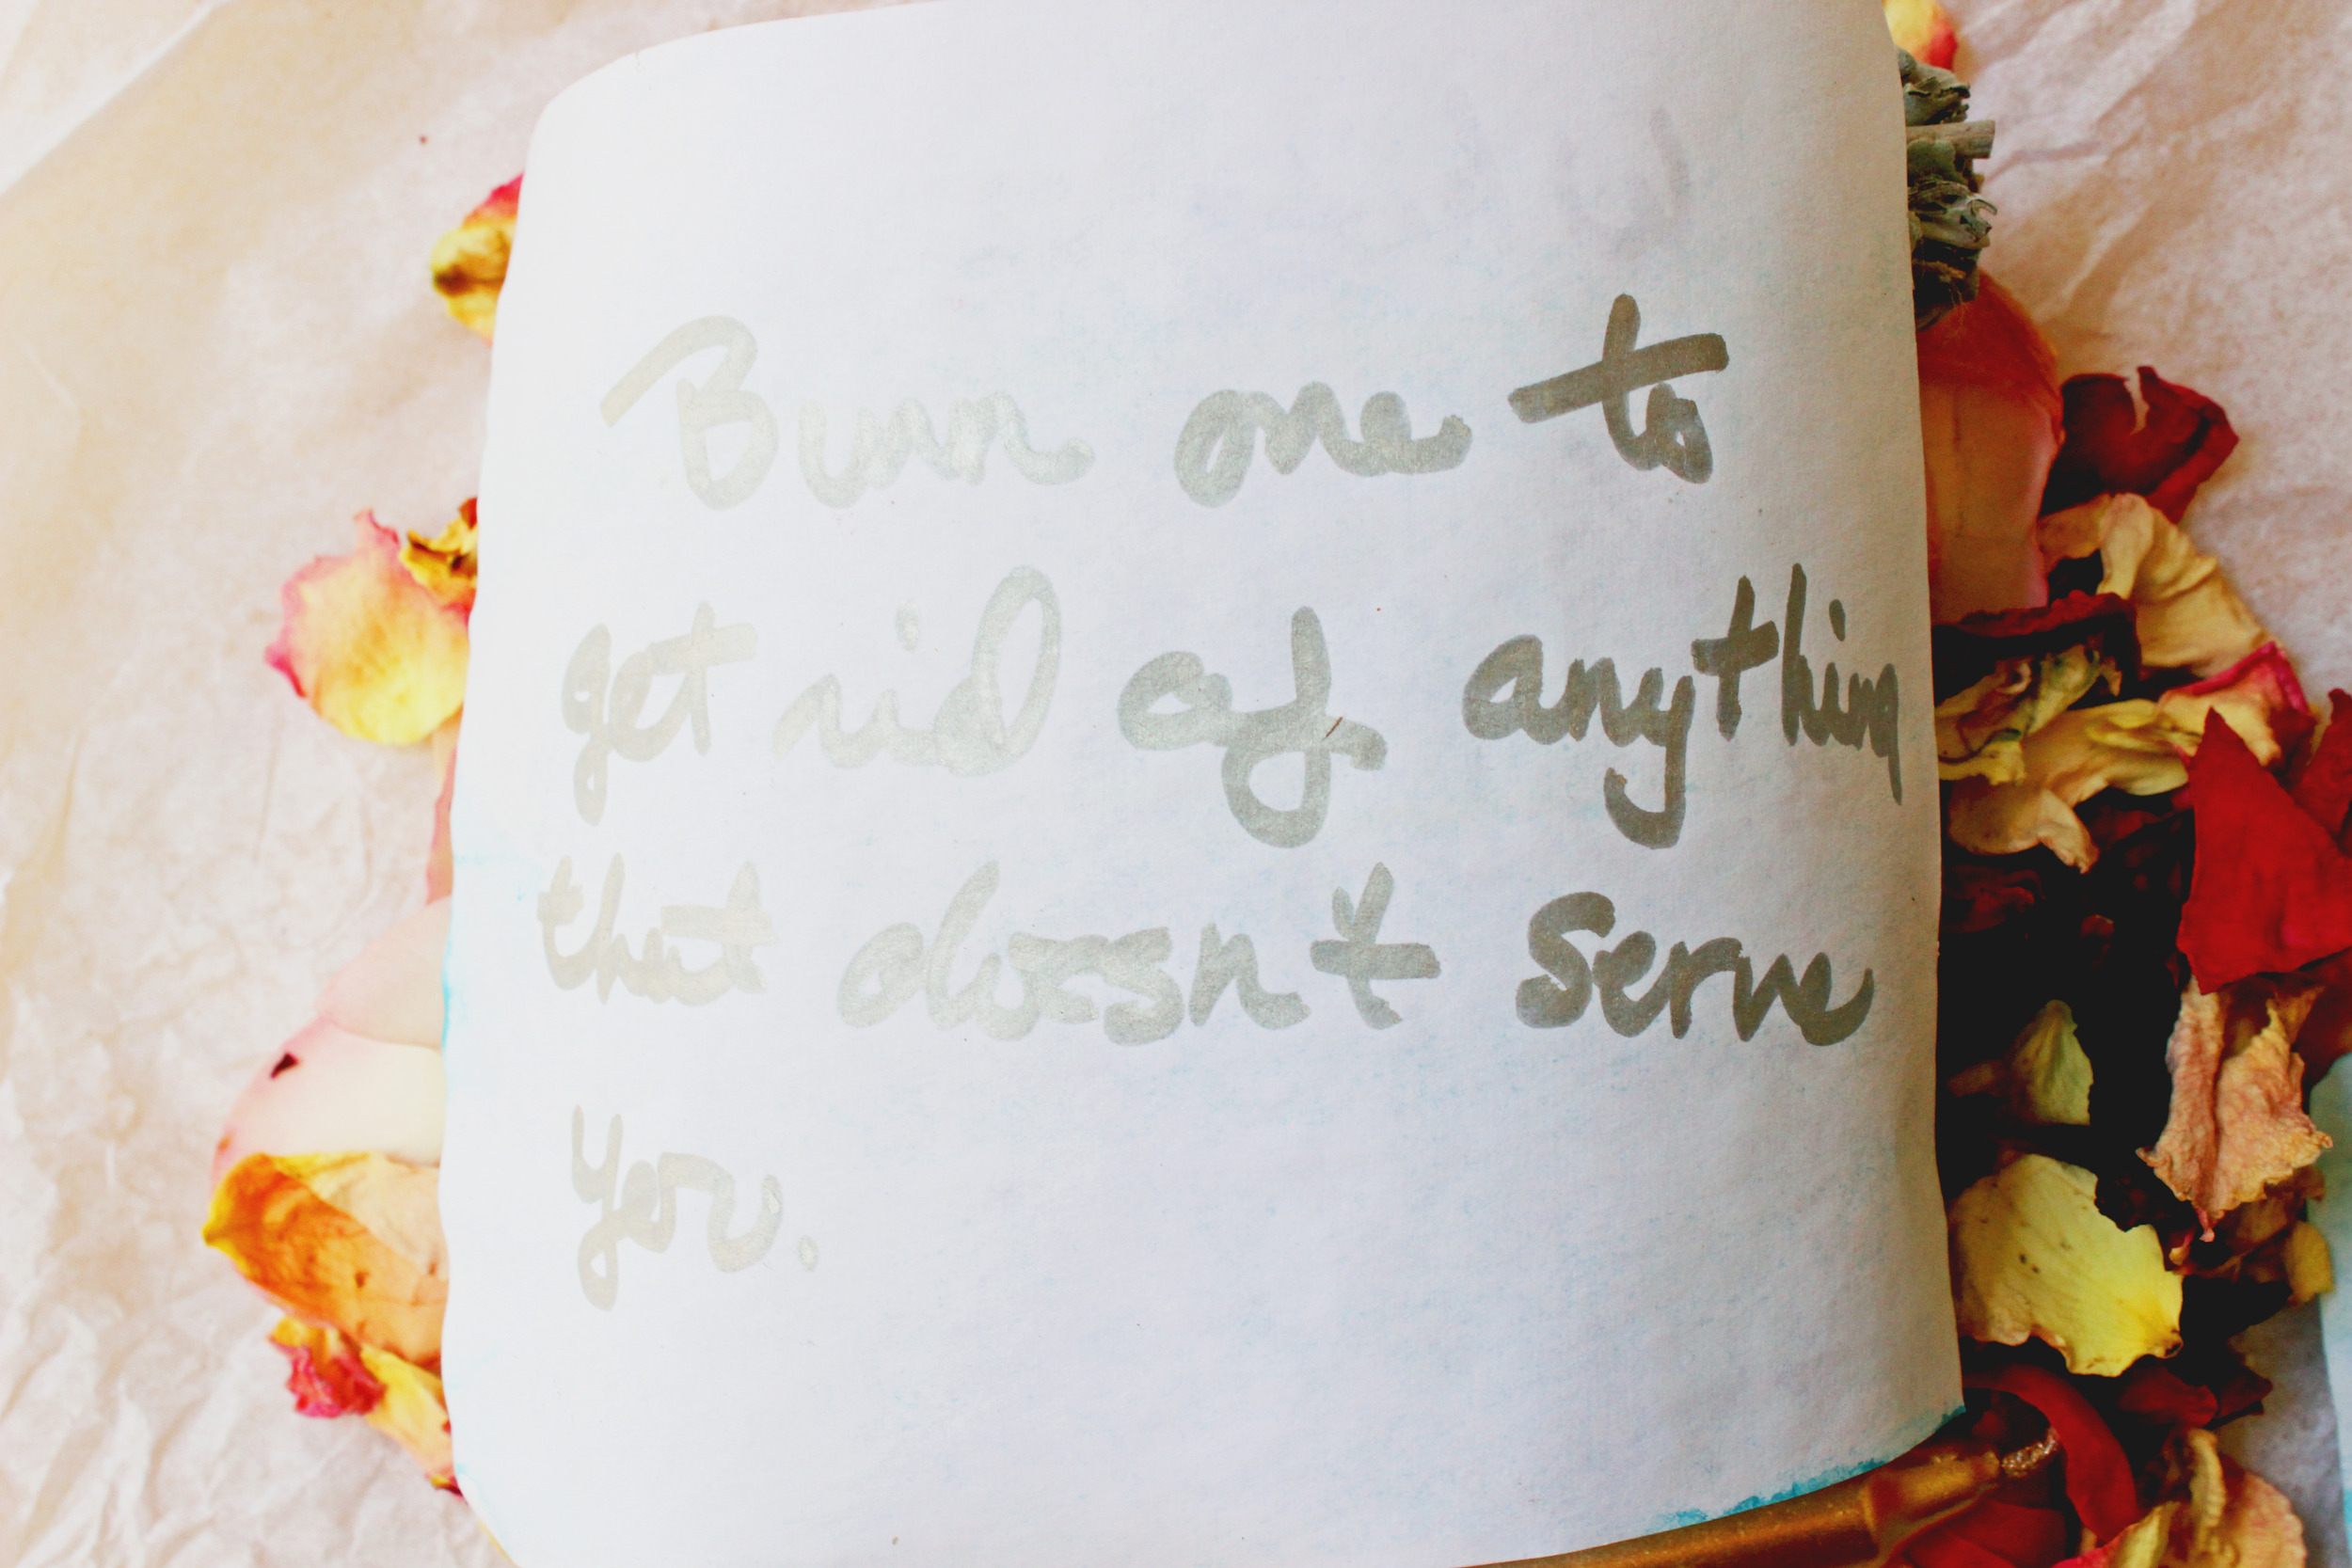 Burn one to
get rid of anything
that doesn't serve
you.